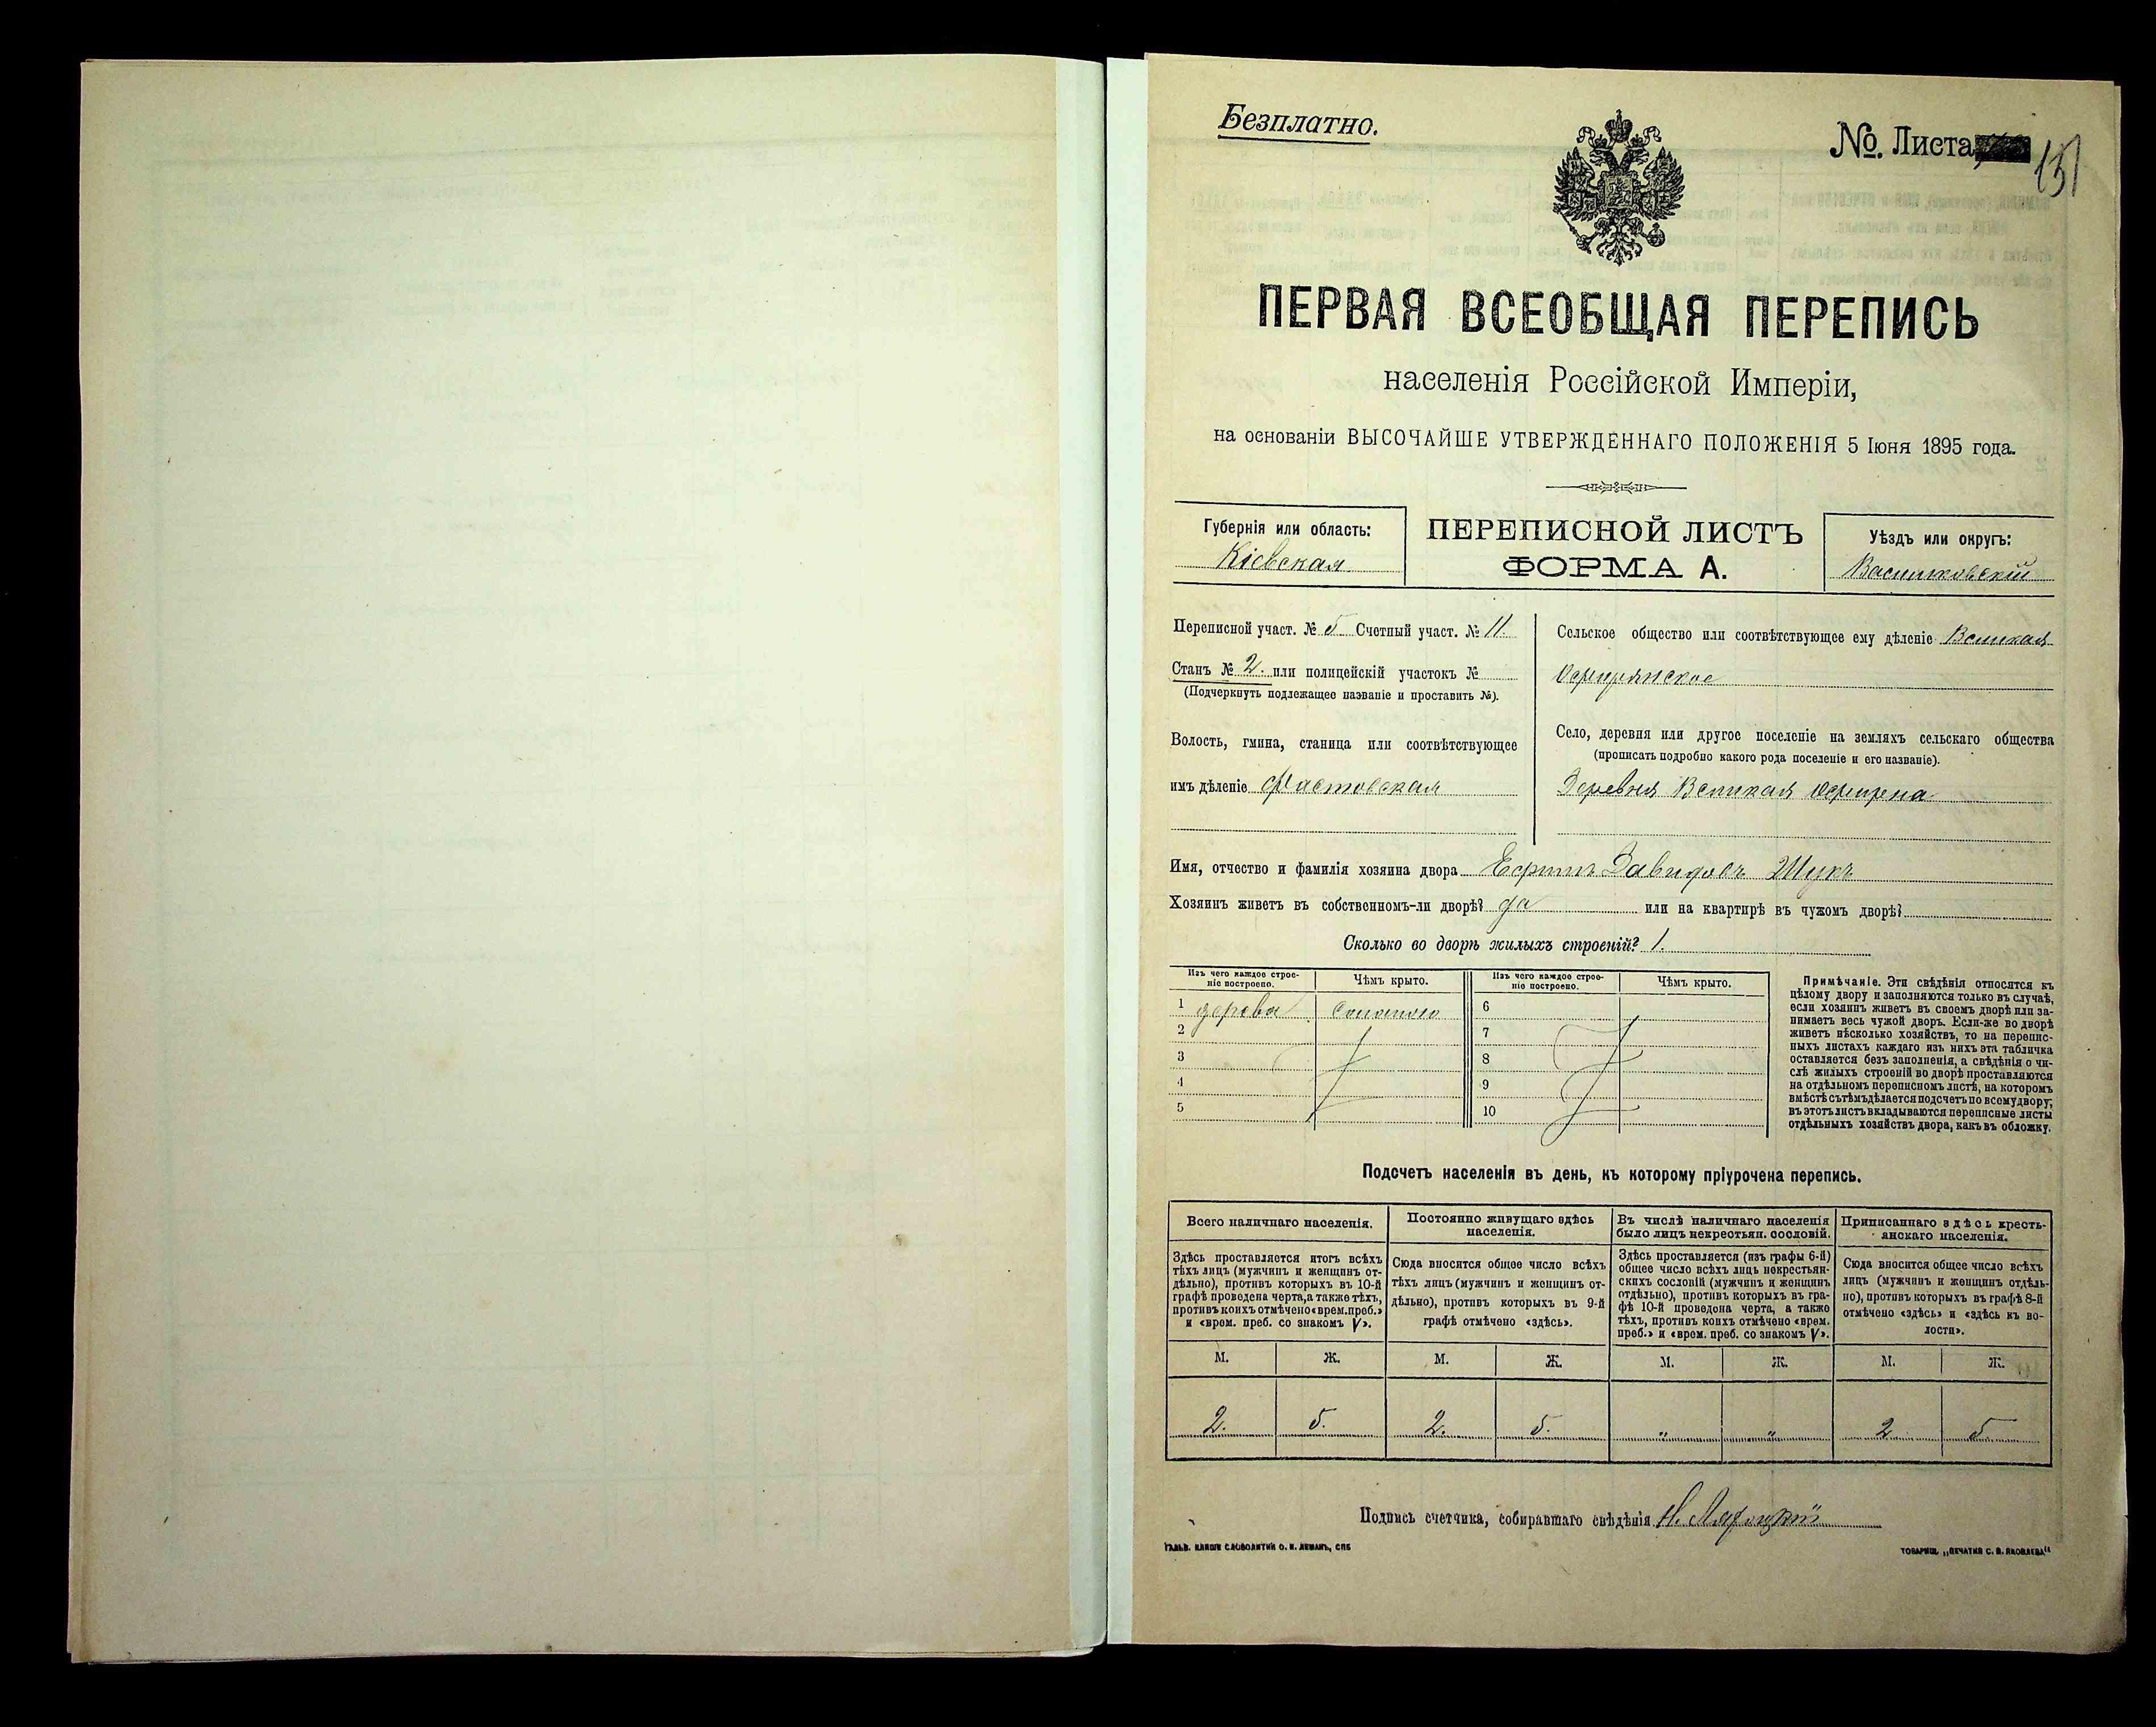 Безплатно.
№. Листа 151
ПЕРВАЯ ВСЕОБЩАЯ ПЕРЕПИСЬ
населенія Россійской Имперіи,
на основаніи ВЫСОЧАЙШЕ УТВЕРЖДЕННАГО ПОЛОЖЕНІЯ 5 Іюня 1895 года.
Губернія или область:
Кіевская
ПЕРЕПИСНОЙ ЛИСТЪ
ФОРМА А.
Уѣздъ или округъ:
Васильковскій
Переписной участ. № 5 Счетный участ. № 11.
Станъ № 2. или полицейскій участокъ №
(Подчеркнуть подлежащее названіе и проставить №).
Волость, гмина, станица или соотвѣтствующее
имъ дѣленіе Фастовская
Сельское общество или соотвѣтствующее ему дѣленіе Великая
Офирнянское
Село, деревня или другое поселеніе на земляхъ сельскаго общества
(прописать подробно какого рода поселеніе и его названіе).
Деревня Великая Офирна
Имя, отчество и фамилія хозяина двора Ефимъ Давидовъ Шукъ
Хозяинъ живетъ въ собственномъ-ли дворѣ? да или на квартирѣ въ чужомъ дворѣ?
Сколько во дворѣ жилыхъ строеній? 1.
Изъ чего каждое строе-
ніе построено.
Чѣмъ крыто.
Изъ чего каждое строе-
ніе построено.
Чѣмъ крыто.
1 дерева соломою 6
2 7
3 8
4 9
5 10
Примѣчаніе. Эти свѣдѣнія относятся къ
цѣлому двору и заполняются только въ случаѣ,
если хозяинъ живетъ въ своемъ дворѣ или за-
нимаетъ весь чужой дворъ. Если-же во дворѣ
живетъ нѣсколько хозяйствъ, то на перепис-
ныхъ листахъ каждаго изъ нихъ эта табличка
оставляется безъ заполненія, а свѣдѣнія о чи-
слѣ жилыхъ строеній во дворѣ проставляются
на отдѣльномъ переписномъ листѣ, на которомъ
вмѣстѣ съ тѣмъ дѣлается подсчетъ по всему двору;
въ этотъ листъ вкладываются переписные листы
отдѣльныхъ хозяйствъ двора, какъ въ обложку.
Подсчетъ населенія въ день, къ которому пріурочена перепись.
Всего наличнаго населенія.
Здѣсь проставляется итогъ всѣхъ
тѣхъ лицъ (мужчинъ и женщинъ от-
дѣльно), противъ которыхъ въ 10-й
графѣ проведена черта, а также тѣхъ,
противъ коихъ отмѣчено «врем. преб.»
и «врем. преб. со знакомъ V».
Постоянно живущаго здѣсь
населенія.
Сюда вносится общее число всѣхъ
тѣхъ лицъ (мужчинъ и женщинъ от-
дѣльно), противъ которыхъ въ 9-й
графѣ отмѣчено «здѣсь».
Въ числѣ наличнаго населенія
было лицъ некрестьян. сословій.
Здѣсь проставляется (изъ графы 6-й)
общее число всѣхъ лицъ некрестьян-
скихъ сословій (мужчинъ и женщинъ
отдѣльно), противъ которыхъ въ гра-
фѣ 10-й проведена черта, а также
тѣхъ, противъ коихъ отмѣчено «врем.
преб.» и «врем. преб. со знакомъ V».
Приписаннаго здѣсь кресть-
янскаго населенія.
Сюда вносится общее число всѣхъ
лицъ (мужчинъ и женщинъ отдѣль-
но), противъ которыхъ въ графѣ 8-й
отмѣчено «здѣсь» и «здѣсь къ во-
лости».
М. Ж. М. Ж. М. Ж. М. Ж.
2. 5. 2. 5. " " 2 5
Подпись счетчика, собиравшаго свѣдѣнія Н.
ГАЛЬВ. КЛИШЕ СЛОВОЛИТНИ О. И. ЛЕМАНЪ, СПБ
ТОВАРИЩ. „ПЕЧАТНЯ С. П. ЯКОВЛЕВА"